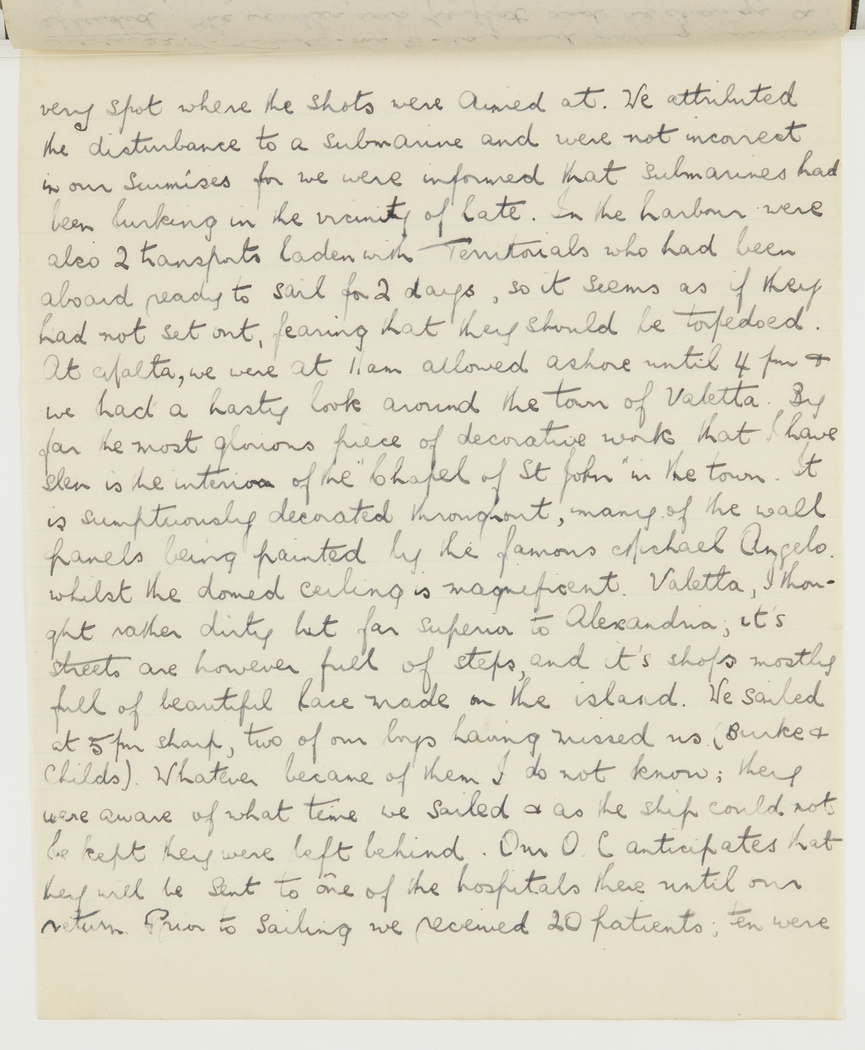 very spot where the shots were aimed at. We attributed
the disturbance to a submarine and were not incorrect
in our surmises for we were informed that submarines had
been lurking in the vicinity of late. In the harbour were
also 2 transports laden with Territorials who had been
aboard ready to sail for 2 days, so it seems as if they
had not set out, fearing that they should be torpedoed.
At Malta, we were at 11am allowed ashore until 4 pm &
we had a hasty look around the town of Valetta. By
far the most glorious piece of decorative work that I have
seen is the interior of the "Chapel of St John" in the town. It
is sumptuously decorated throughout, many of the wall
panels being painted by the famous Michael Angelo.
whilst the domed ceiling is magnificent. Valetta, I thou-
ght rather dirty but far superior to Alexandria; it's
streets are however full of steps, and it's shops mostly
full of beautiful lace made on the island. We sailed
at 5 pm sharp, two of our boys having missed us (Burke &
Childs). Whatever became of them I do not know; they
were aware of what time we sailed & as the ship could not
be kept they were left behind. Our O.C anticipates that
they will be sent to one of the hospitals there until our
return. Prior to sailing we received 20 patients; ten were